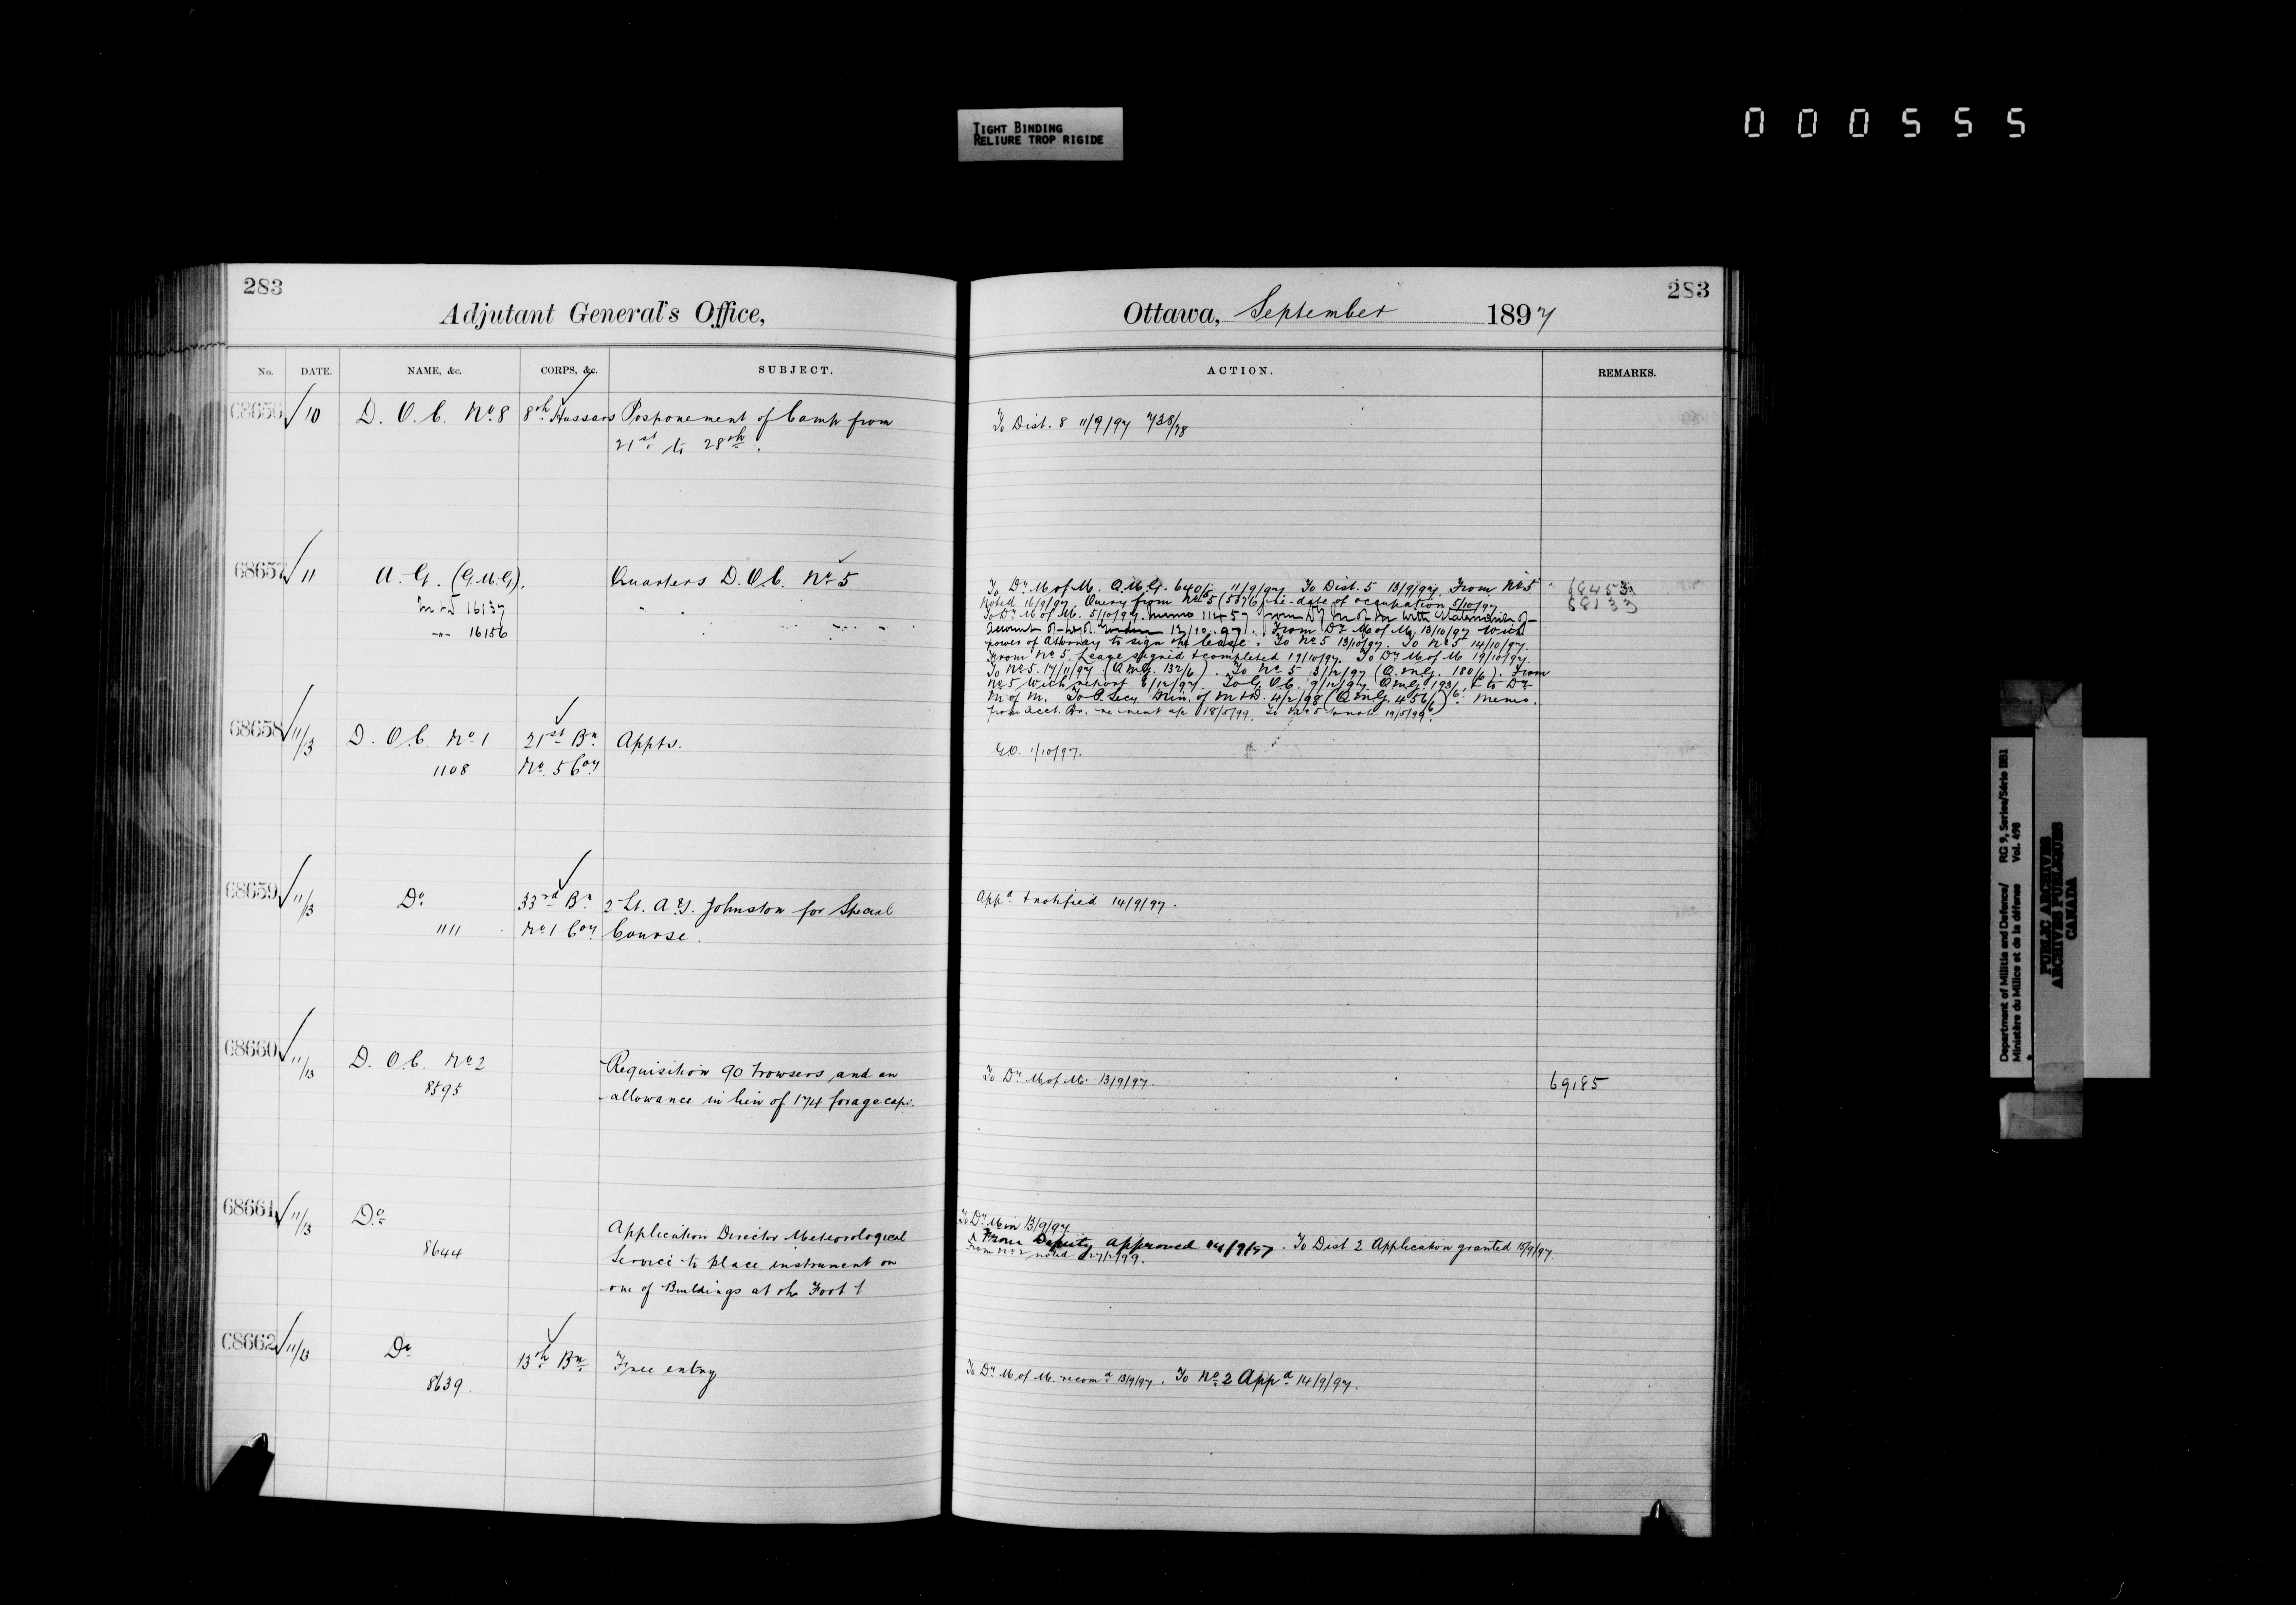 TIGHT BINDING
RELIURE TROP RIGIDE
000555
283
Adjutant General's Office,
No. DATE. NAME, &c. CORPS, &c. SUBJECT.
68656 10 D.O.C. No. 8 8th Hussars Posponement of Camp from
21st to 28th.
68657 11 A.G. (Q.M.G), Quarters D.O.C. No. 5
M & D 16137
-"- 16156
68658 11/13 D.O.C. No. 1 21st Bn. Appts.
1108 No. 5 Coy
68659 11/13 Do. 33rd Bn 2 Lt. A.G. Johnston for Special
1111 No 1 Coy Course.
68660 11/13 D.O.C. No. 2 Requisition 90 trowsers and an
8595 allowance in lieu of 174 forage caps.
68661 11/13 Do.
8644 Application Director Meteorological
Service to place instrument on
one of Buildings at the Foot
68662 11/13 Do 13th Bn. Free entry
8639.
283
Ottawa, September 1897
ACTION. REMARKS.
To Dist. 8 11/9/97 738/98
To Dy. M of M. Q.M.G. 640/5 11/9/97 To Dist. 5 13/9/97 From No. 5 68453
Noted 16/9/97 Query from No. 5 (5876) re date of occupation 5/10/97 68133
To Dy. M of M. 5/10/97. memo 11457 from Dy M of M with Statement of
Account of 12/10.97. From Dy. M of M. 13/10/97 with
power of Attorney to sign the lease. To No. 5 13/10/97. To No. 5 14/10/97.
From No. 5 Lease signed & completed 19/10/97. To Dy. M of M 19/10/97.
To No. 5. 17/11/97 (Q.M.G. 132/6). To No. 5 3/12/97 (Q.M.G. 180/6). From
No. 5 with report 8/12/97. To G.O.C. 9/12/97 Q.M.G. 193/6, & to Dy.
M of M. To P. Secy. Min. of M & D. 4/2/98 (Q.M.G. 456/6). Memo.
from Acct. Br. 18/5/99. To No. 5 to note 19/5/99.
G.O. 1/10/97.
Appd. & notified 14/9/97.
To Dy. M of M. 13/9/97. 69185
To Dy. Min 13/9/97
From Deputy approved 14/9/97. To Dist. 2 Application granted 15/9/97
From No 2 noted
To Dy. M of M. recomd. 13/9/97. To No. 2 Appd. 14/9/97.
Department of Militia and Defence/ RG 9, Series/Série IIB1
Ministère du Milice et de la défense Vol. 498
PUBLIC ARCHIVES
ARCHIVES PUBLIQUES
CANADA